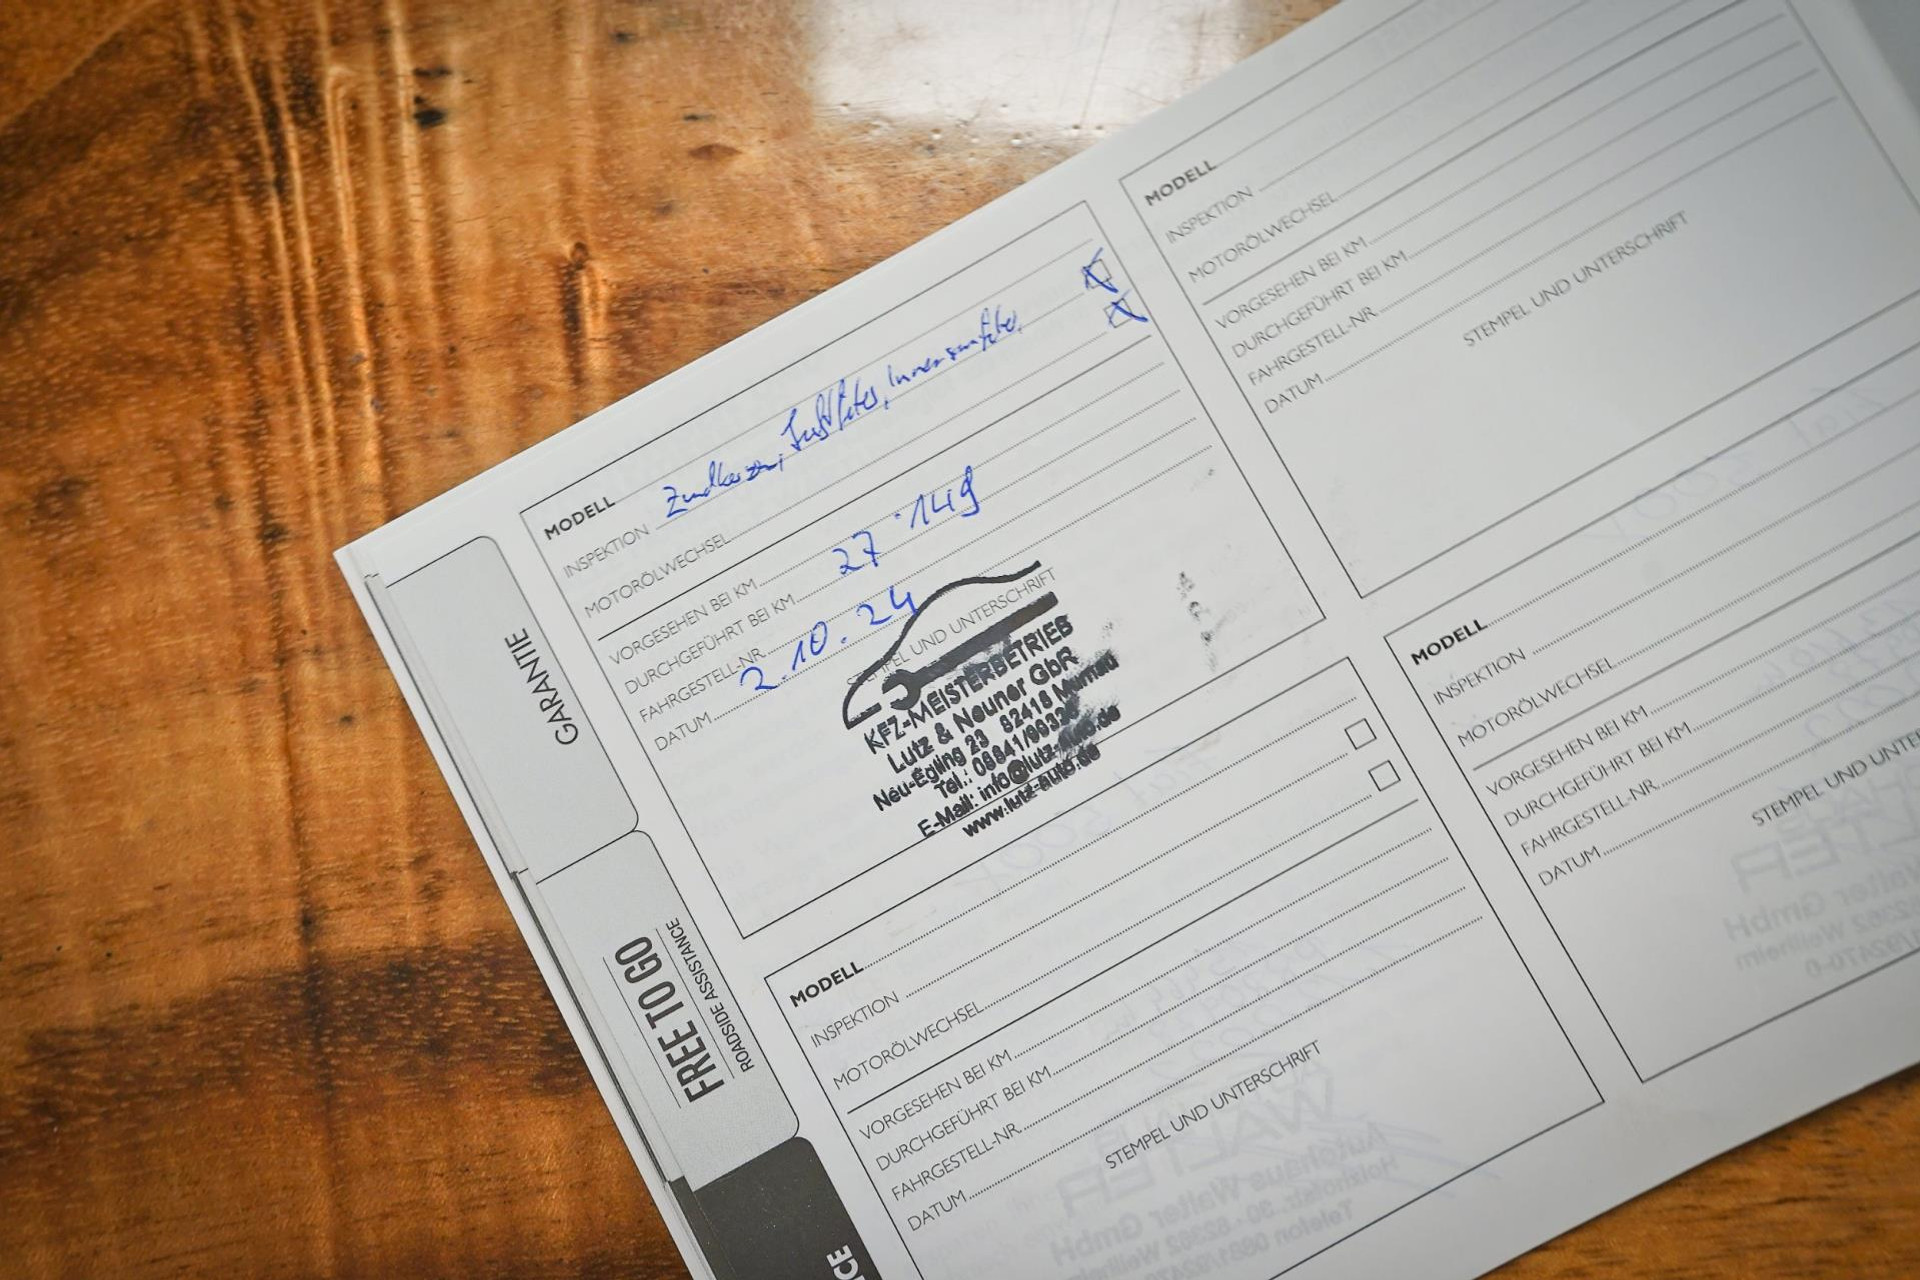 GARANTIE
FREE TO GO
ROADSIDE ASSISTANCE
MODELL
INSPEKTION Zündkerzen, Luftfilter, Innenraumfilter
MOTORÖLWECHSEL
VORGESEHEN BEI KM
DURCHGEFÜHRT BEI KM 27.149
FAHRGESTELL-NR.
DATUM 2.10.24
STEMPEL UND UNTERSCHRIFT
KFZ-MEISTERBETRIEB
Lutz & Neuner GbR
Neu-Egling 23 82418 Murnau
Tel.: 08841/
E-Mail: info@lutz-auto.de
www.lutz-auto.de
MODELL
INSPEKTION
MOTORÖLWECHSEL
VORGESEHEN BEI KM
DURCHGEFÜHRT BEI KM
FAHRGESTELL-NR.
DATUM
STEMPEL UND UNTERSCHRIFT
MODELL
INSPEKTION
MOTORÖLWECHSEL
VORGESEHEN BEI KM
DURCHGEFÜHRT BEI KM
FAHRGESTELL-NR.
DATUM
STEMPEL UND UNTERSCHRIFT
MODELL
INSPEKTION
MOTORÖLWECHSEL
VORGESEHEN BEI KM
DURCHGEFÜHRT BEI KM
FAHRGESTELL-NR.
DATUM
STEMPEL UND UNTE